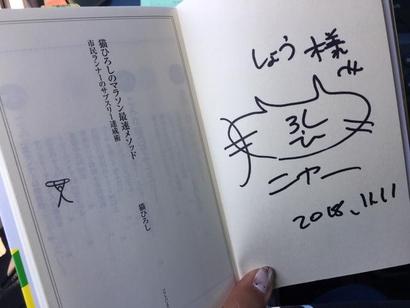 猫ひろしのマラソン最速メソッド
市民ランナーのサブスリー達成術
猫ひろし
しょう様
ろし
ひ
ニャー
2018.11.11